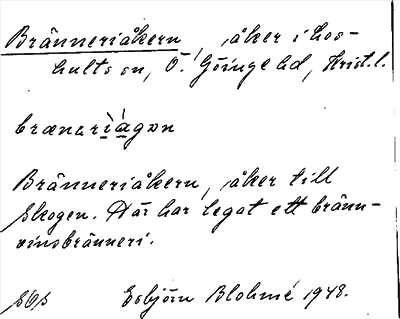 Bränneriåkern, åker i Los-
hults sn, Ö. Göinge hd, Krist. l.
brænərì̱á̱gən
Bränneriåkern, åker till
Skogen. Där har legat ett bränn-
vinsbränneri.
Esbjörn Blohmé 1948.